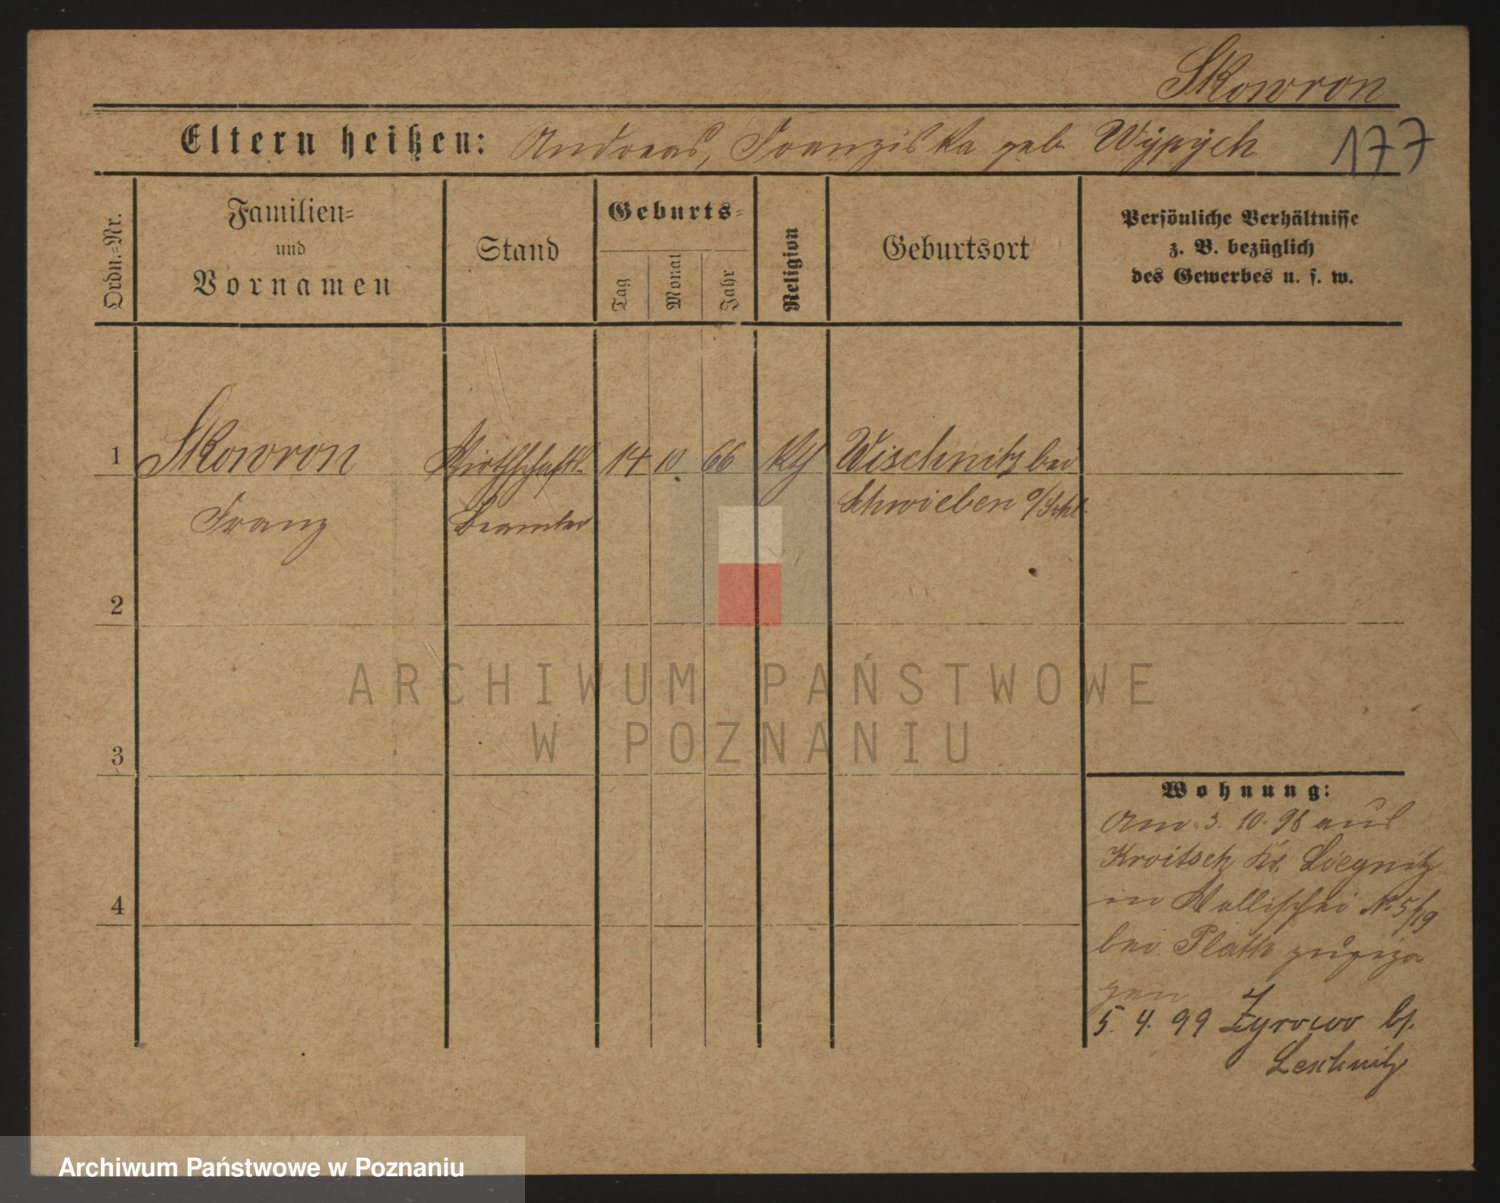 Skowron
Eltern heißen: Andreas, Franziska geb Wÿpÿch
177
Ordn.=Nr.
Familien=
und
Vornamen
Stand
Geburts=
Tag
Monat
Jahr
Religion
Geburtsort
Persönliche Verhältnisse
z. B. bezüglich
des Gewerbes u. s. w.
1 Skowron Wirthschafts- 14 10 66 Kth Wischnitz bei
Franz Beamter Schwieben o/Schl.
2
3
4
Wohnung:
Am 3. 10. 98 aus
Kroitsch Kr. Liegnitz
in Wallischei No 5/19
bei Plath zugezo
gen
5. 4. 99 Zyrowo b/.
Leschnitz
ARCHIWUM PAŃSTWOWE
W POZNANIU
Archiwum Państwowe w Poznaniu